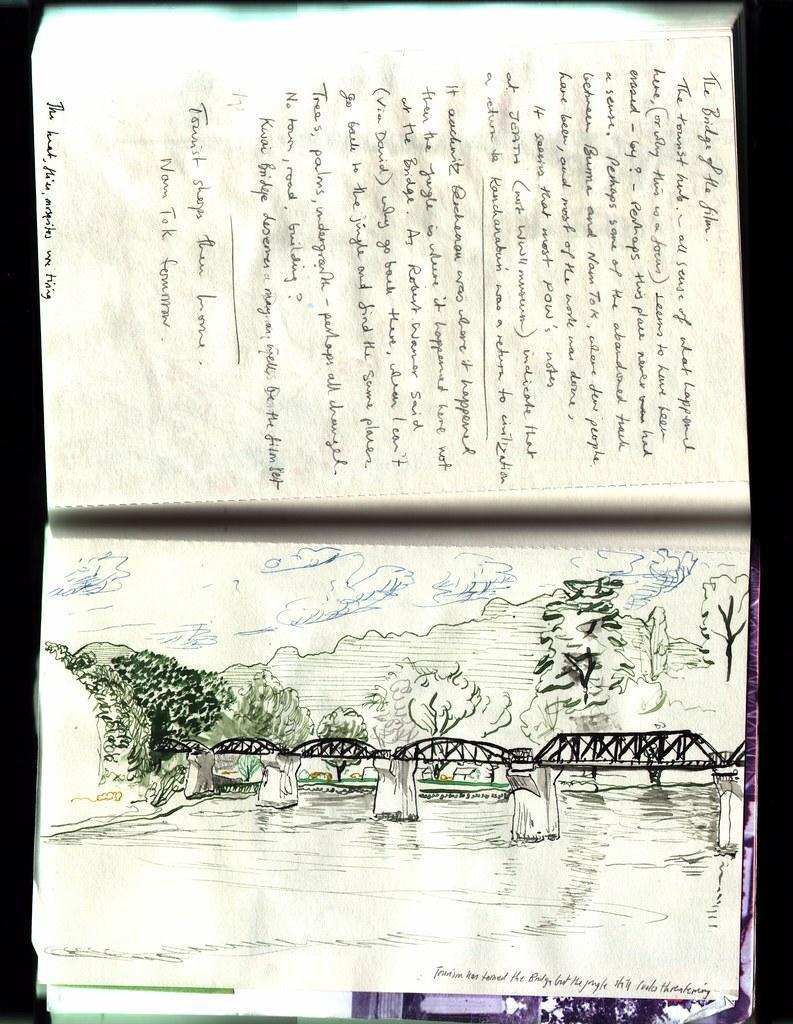 The Bridge of the film.
The tourist hub. – all sense of what happened
here, (or why this is a focus) seems to have been
erased – by? – Perhaps this place never even had
a sense. Perhaps some of the abandoned track
between Burma and Nam Tok, where few people
have been, and most of the work was done,
It seems that most POW's notes
at JEATH (not WWII museum) indicate that
a return to Kanchanaburi was a return to civilization
If Berchenau was where it happened
then the jungle is where it happened here not
at the Bridge. As Robert Warner said
(via David) why go back there, when I can't
go back to the jungle and find the same places.
Trees, palms, undergrowth – perhaps all changed.
No town, road, building?
Kwai Bridge deserves may as well be the film set
Tourist shops then home.
Nam Tok tomorrow.
The heat, flies, mosquitos are tiring
Tourism has tamed the Bridge but the jungle still looks threatening